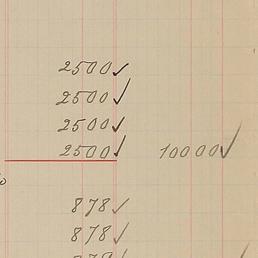 2500✓
2500✓
2500✓
2500✓ 10000✓
878✓
878✓